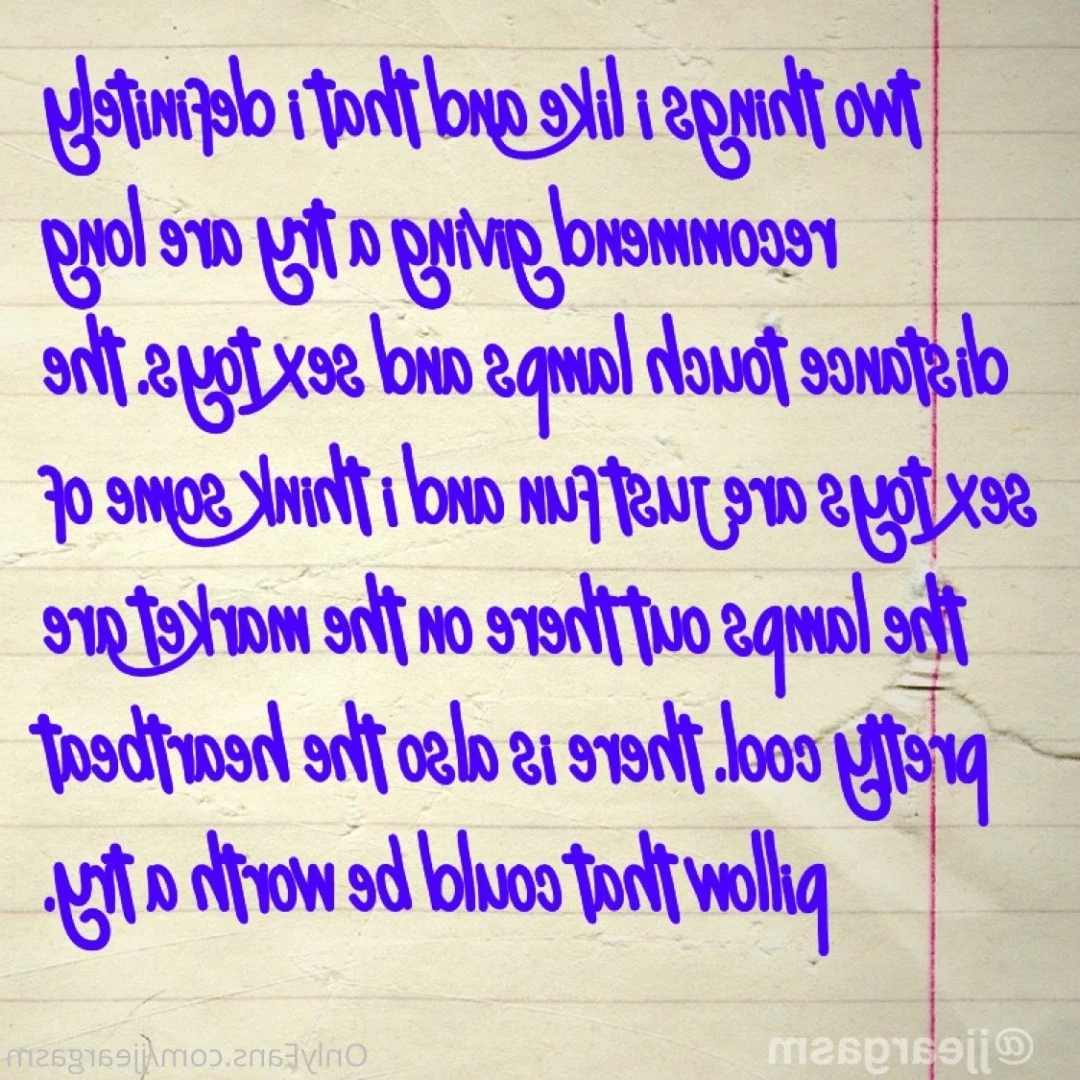 two things i like and that i definitely
recommend giving a try are long
distance touch lamps and sex toys. the
sex toys are just fun and i think some of
the lamps out there on the market are
pretty cool. there is also the heartbeat
pillow that could be worth a try.
@jjeargasm
OnlyFans.com/jjeargasm